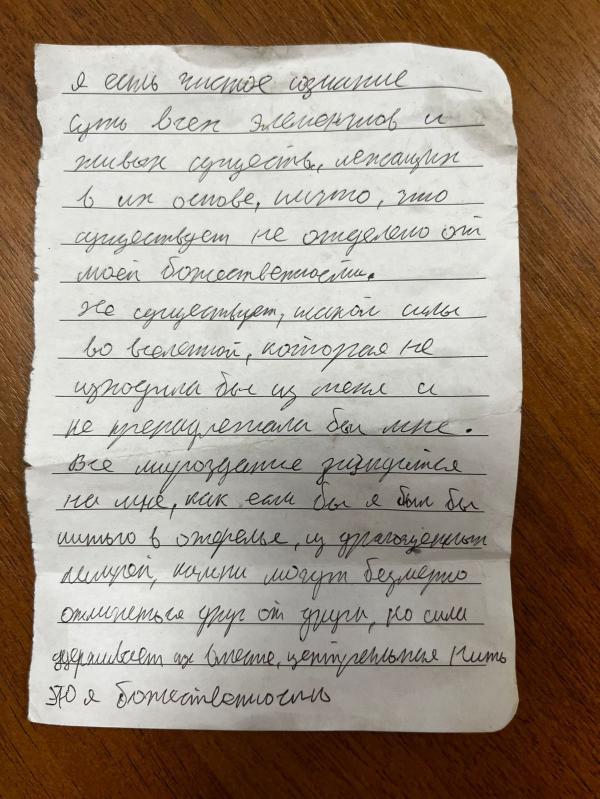 я есть чистое сознание
суть всех элементов и
живых существ, лежащих
в их основе, ничто, что
существует не отделено от
моей божественности.
Не существует, такой силы
во вселенной, которая не
исходила бы из меня и
не принадлежала бы мне.
Все мироздание зиждится
на мне, как если бы я был бы
нитью в ожерелье, из драгоценных
камней, камни могут безмерно
отличаться друг от друга, но сила
удерживает их вместе, центральная нить
это я божественность